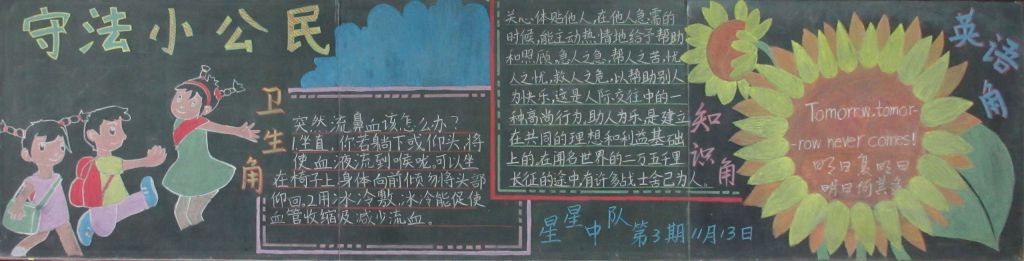 守法小公民
卫生角
突然流鼻血该怎么办？
1坐直，你若躺下或仰头，将
使血液流到喉咙，可以坐
在椅子上身体向前倾勿将头部
仰回2用冰冷敷，冰冷能促使
血管收缩及减少流血。
关心、体贴他人，在他人急需的
时候，能主动热情地给予帮助
和照顾，急人之急，帮人之苦，忧
人之忧，救人之危，以帮助别人
为快乐，这是人际交往中的一
种高尚行为，助人为乐，是建立
在共同的理想和利益基础
上的，在闻名世界的二万五千里
长征的途中有许多战士舍己为人。
知识角
星星中队 第3期 11月13日
英语角
Tomorrow.tomor-
-row never comes!
明日复明日
明日何其多